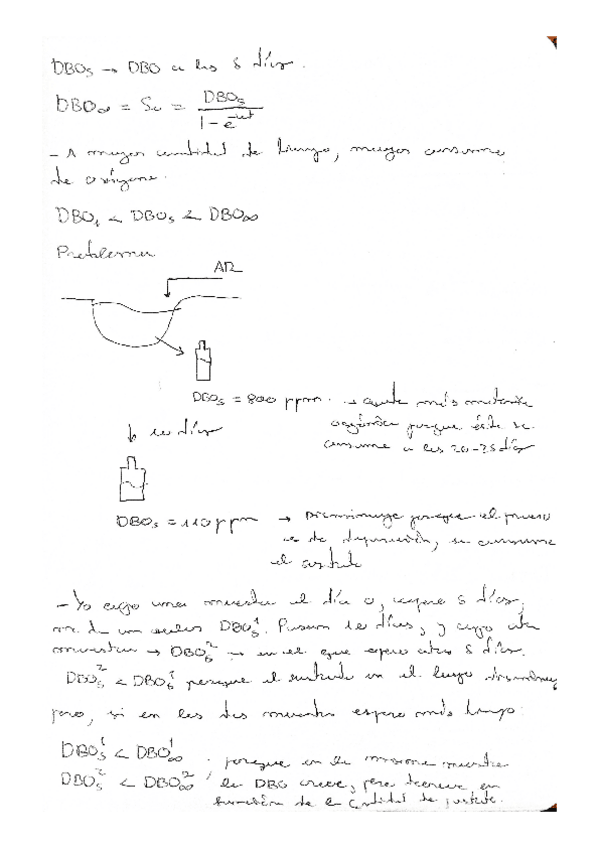 DBO₅ → DBO a los 5 días.
DBO∞ = S₀ = DBO₅ / 1 - e^-kt
- A mayor cantidad de tiempo, mayor consumo
de oxígeno.
DBO₁ < DBO₅ < DBO∞
Problema
AR
DBO₅ = 800 ppm. → queda más materia
orgánica porque ésta se
consume a los 20-25 días
↓ 10 días
DBO₅ = 110 ppm → Disminuye porque el proceso
es de depuración, se consume
el sustrato
- Yo cojo una muestra el día 0, espero 5 días,
me da un valor DBO₅¹. Pasan 10 días, y cojo otra
muestra → DBO₅² → en el que espero otros 5 días.
DBO₅² < DBO₅¹ porque el sustrato en el lago disminuye
pero, si en las dos muestras espero más tiempo:
DBO₅¹ < DBO∞¹ porque en la misma muestra
DBO₅² < DBO∞² la DBO crece, pero decrece en
función de la cantidad de sustrato.